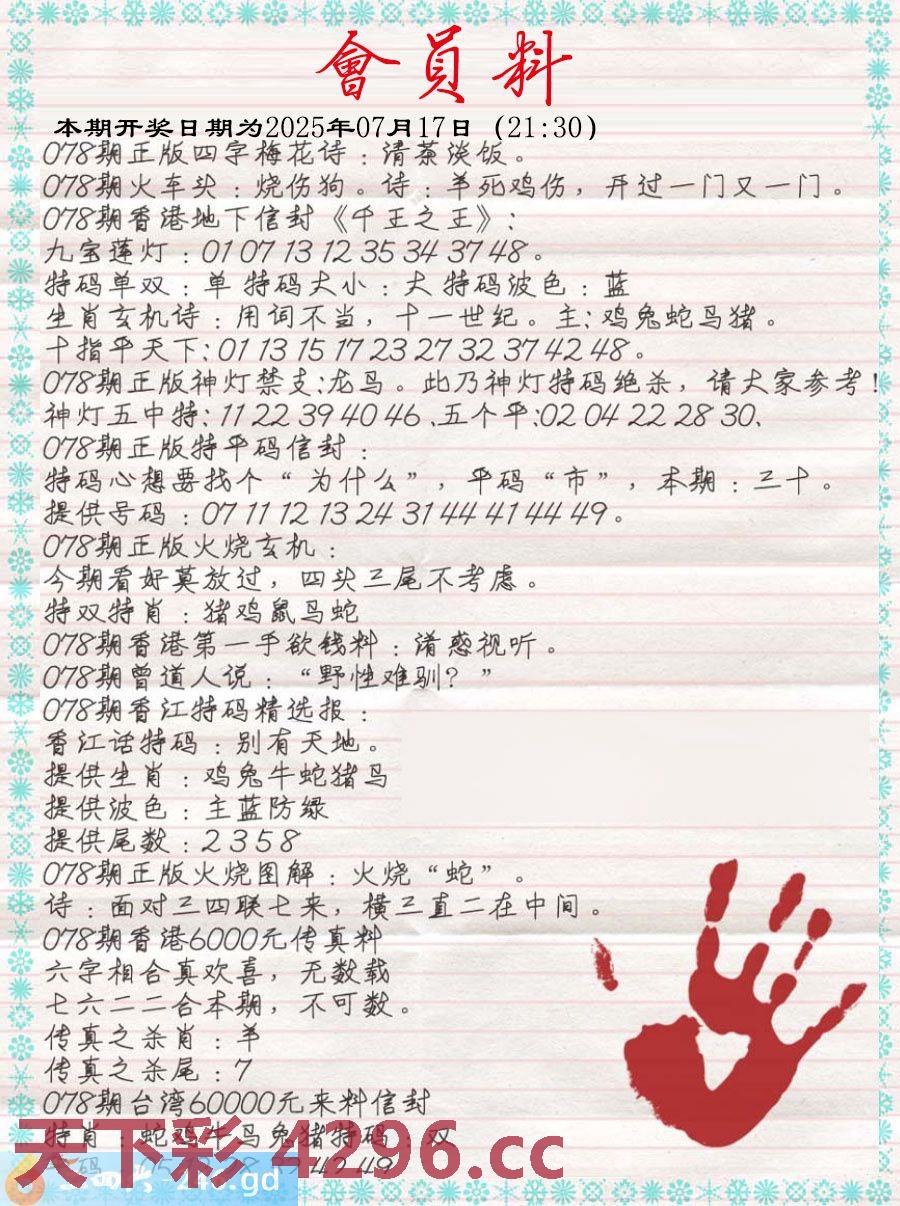 會員料
本期开奖日期为2025年07月17日 (21:30)
078期正版四字梅花诗：清茶淡饭。
078期火车头：烧伤狗。诗：羊死鸡伤，开过一门又一门。
078期香港地下信封《千王之王》：
九宝莲灯：01 07 13 12 35 34 37 48。
特码单双：单 特码大小：大 特码波色：蓝
生肖玄机诗：用词不当，十一世纪。主：鸡兔蛇马猪。
十指平天下：01 13 15 17 23 27 32 37 42 48。
078期正版神灯禁支：龙马。此乃神灯特码绝杀，请大家参考！
神灯五中特：11 22 39 40 46 .五个平：02 04 22 28 30、
078期正版特平码信封：
特码心想要找个“为什么”，平码“市”，本期：三十。
提供号码：07 11 12 13 24 31 44 41 44 49。
078期正版火烧玄机：
今期看好莫放过，四头三尾不考虑。
特双特肖：猪鸡鼠马蛇
078期香港第一手欲钱料：淆惑视听。
078期曾道人说：“野性难驯？”
078期香江特码精选报：
香江话特码：别有天地。
提供生肖：鸡兔牛蛇猪马
提供波色：主蓝防绿
提供尾数：2 3 5 8
078期正版火烧图解：火烧“蛇”。
诗：面对三四联七来，横三直二在中间。
078期香港6000元传真料
六字相合真欢喜，无数载
七六二二合本期，不可数。
传真之杀肖：羊
传真之杀尾：7
078期台湾60000元来料信封
特肖：蛇鸡牛马兔猪特码：双
天下彩 4296.cc
42 49
.gd